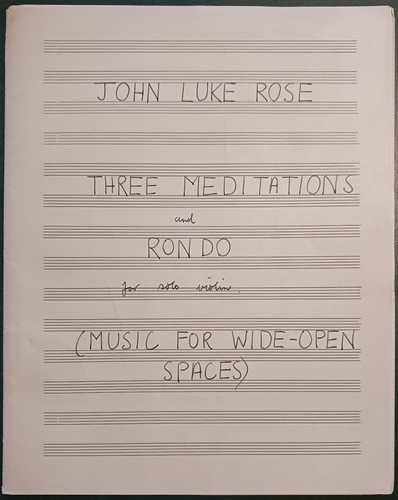 JOHN LUKE ROSE
THREE MEDITATIONS
and
RONDO
for solo violin.
(MUSIC FOR WIDE-OPEN
SPACES)